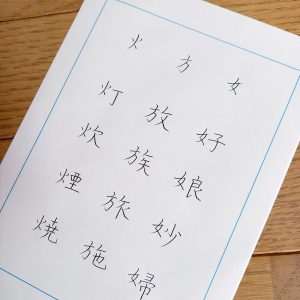 火 方 女
灯 放 好
炊 族 娘
煙 旅 妙
焼 施 婦